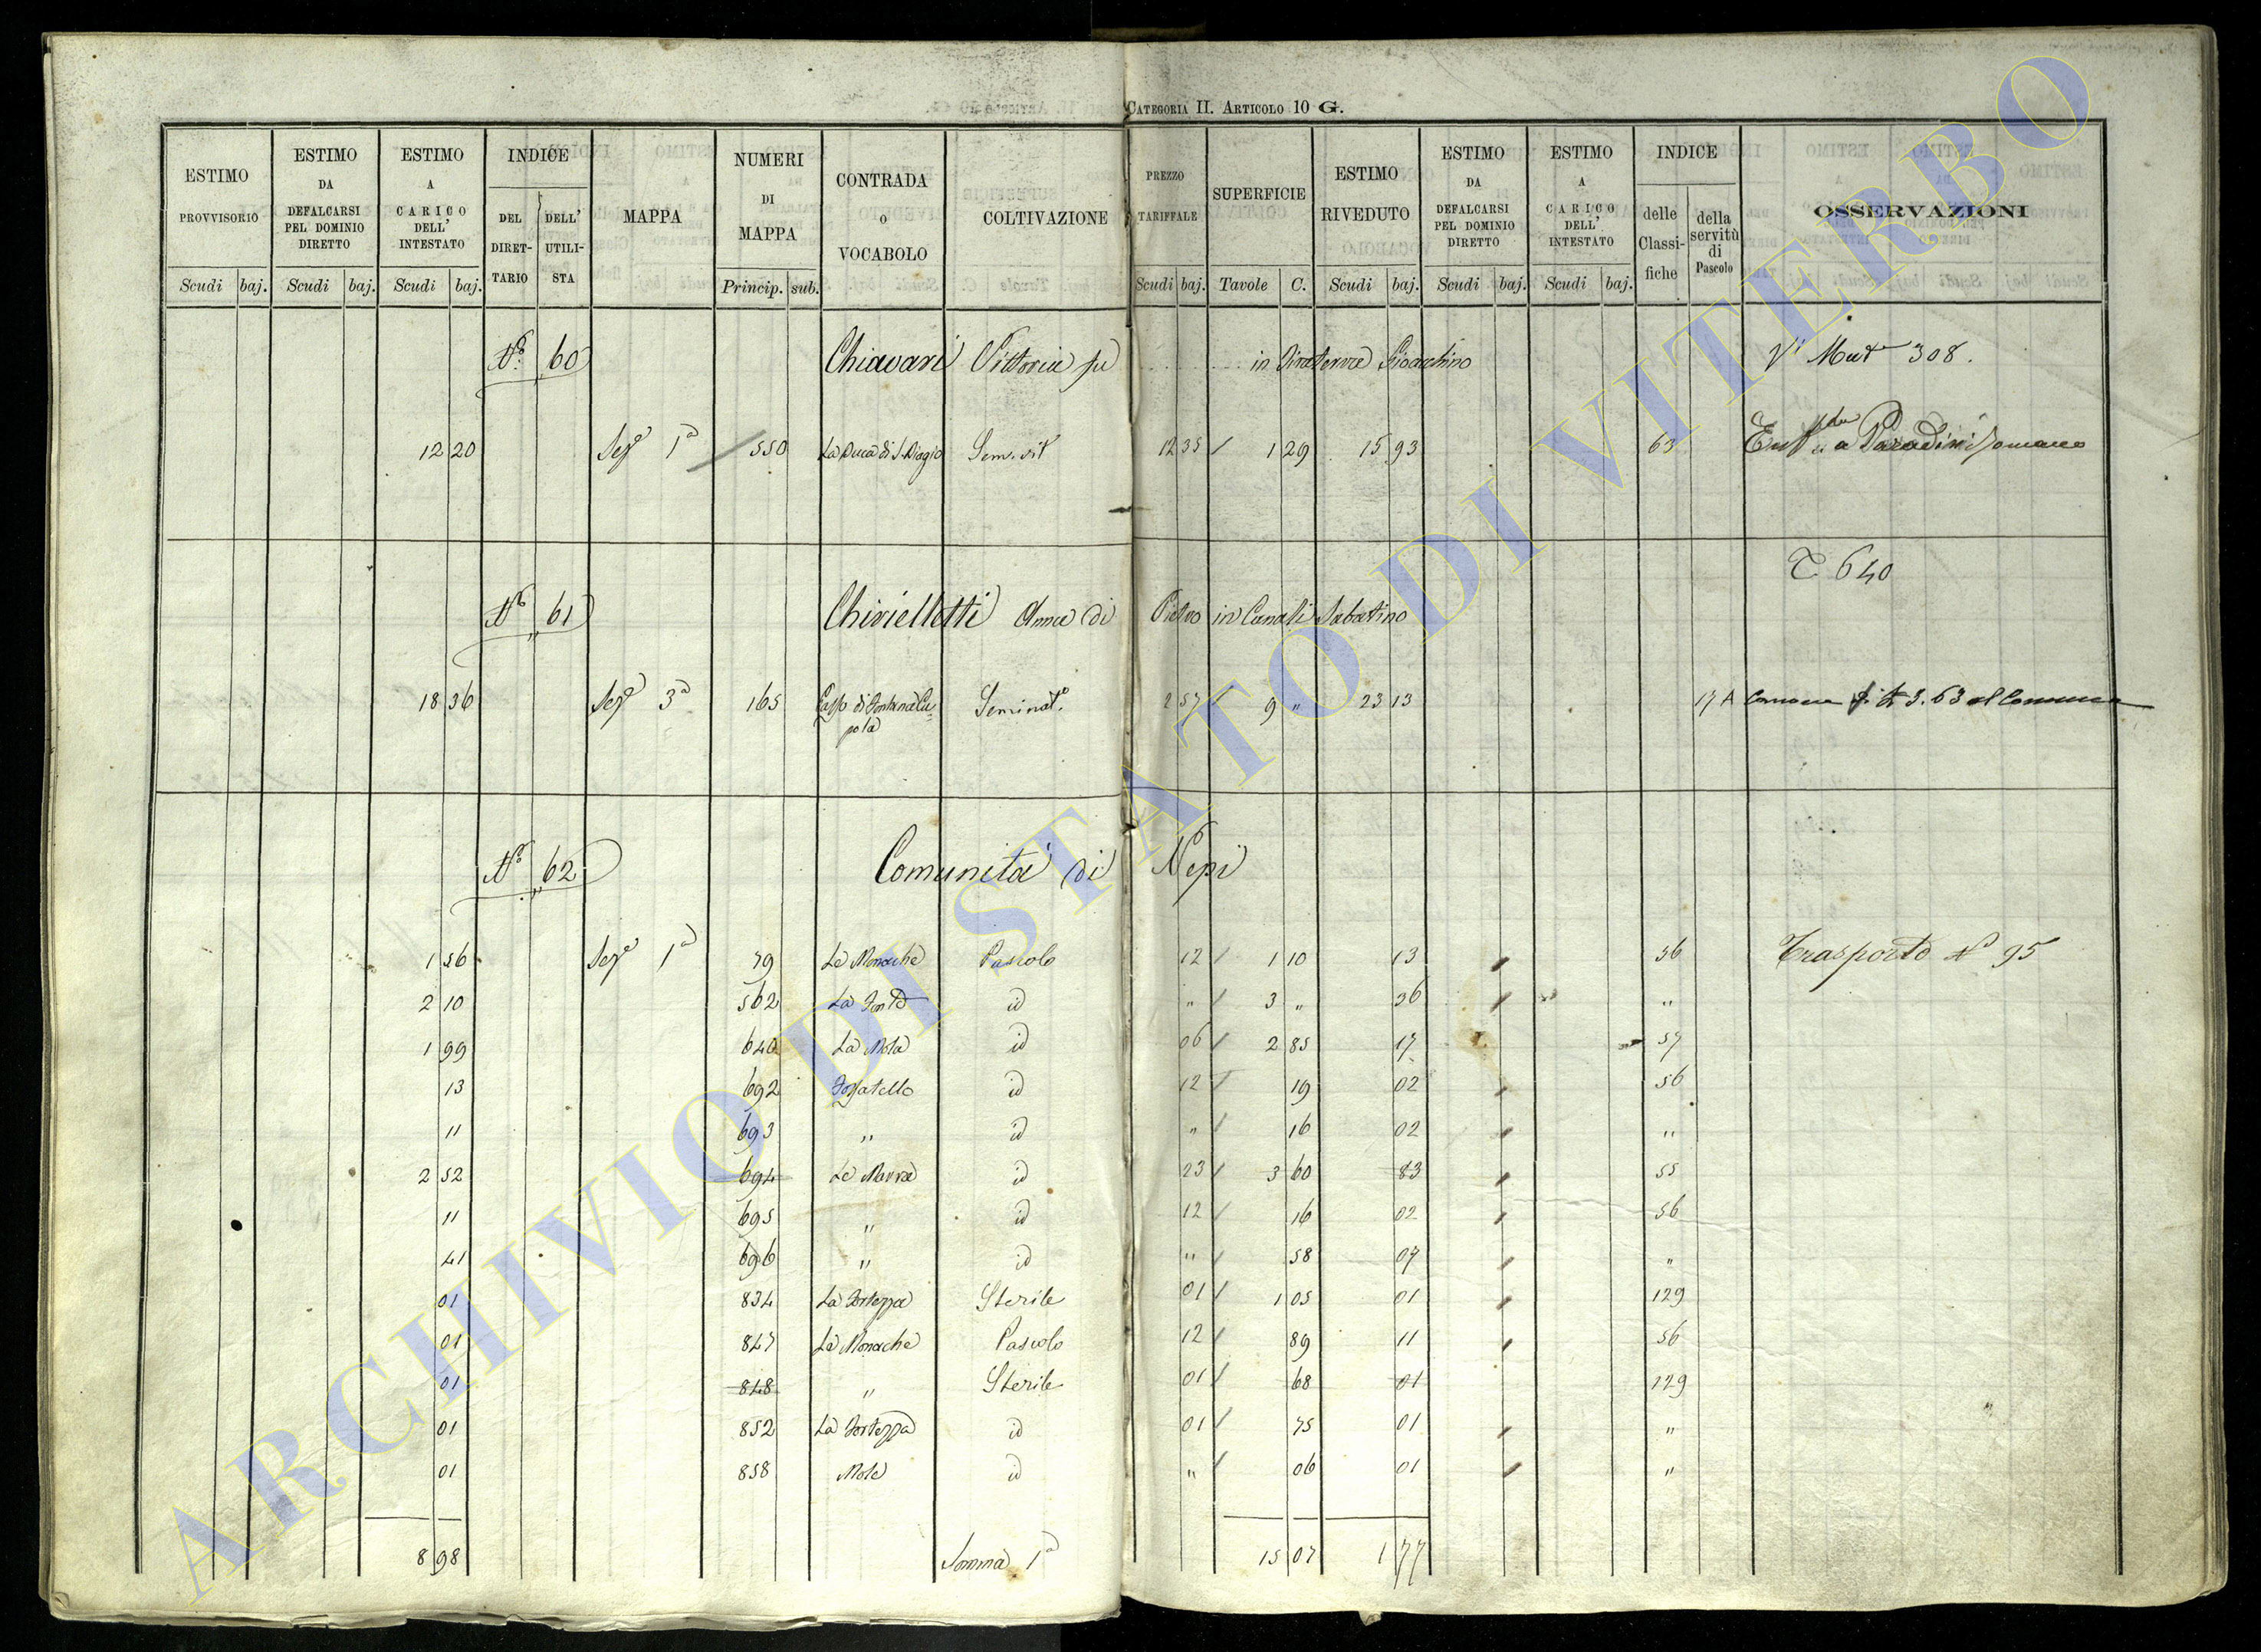 CATEGORIA II. ARTICOLO 10 G.
ESTIMO PROVVISORIO | ESTIMO DA DEFALCARSI PEL DOMINIO DIRETTO | ESTIMO A CARICO DELL' INTESTATO | INDICE DEL DIRET-TARIO | DELL' UTILI-STA | MAPPA | NUMERI DI MAPPA | CONTRADA O VOCABOLO | COLTIVAZIONE | PREZZO TARIFFALE | SUPERFICIE | ESTIMO RIVEDUTO | ESTIMO DA DEFALCARSI PEL DOMINIO DIRETTO | ESTIMO A CARICO DELL' INTESTATO | INDICE delle Classi-fiche | della servitù di Pascolo | OSSERVAZIONI
Scudi baj. Scudi baj. Scudi baj. Princip. sub. Scudi baj. Tavole C. Scudi baj. Scudi baj. Scudi baj.
N° 60 Chiavari Vittoria fu ........ in Gioacchino Vi Mut 308.
12 20 Sezе 1a 550 La Buca di S. Biagio Sem. vit 12 35 / 1 29 15 93 63 a Paradisi
T 640
N° 61 Chirielletti Anna di Pietro in Canali Sabatino
18 36 Seze 3a 165 di Fontana Cu=pola Seminat° 2 57 / 9 " 23 13 17 A 3.63 al Comune
N° 62 Comunità di Nepi
1 56 Seze 1a 79 Le Monache Pascolo 12 / 1 10 13 56 Trasporto N° 95
2 10 562 La Fonte id " / 3 " 36 "
1 99 640 La Mola id 06 / 2 85 17 57
13 692 Fossatello id 12 / 19 02 56
11 693 " id " / 16 02 "
2 52 694 Le Morre id 23 / 3 60 83 55
11 695 " id 12 / 16 02 56
41 696 " id " / 58 07 "
01 834 La Fortezza Sterile 01 / 1 05 01 129
01 847 Le Monache Pascolo 12 / 89 11 56
01 848 " Sterile 01 / 68 01 129
01 852 La Fortezza id 01 / 75 01 "
01 858 Mole id " / 06 01 "
8 98 Somma 1a 15 07 1 77
ARCHIVIO DI STATO DI VITERBO